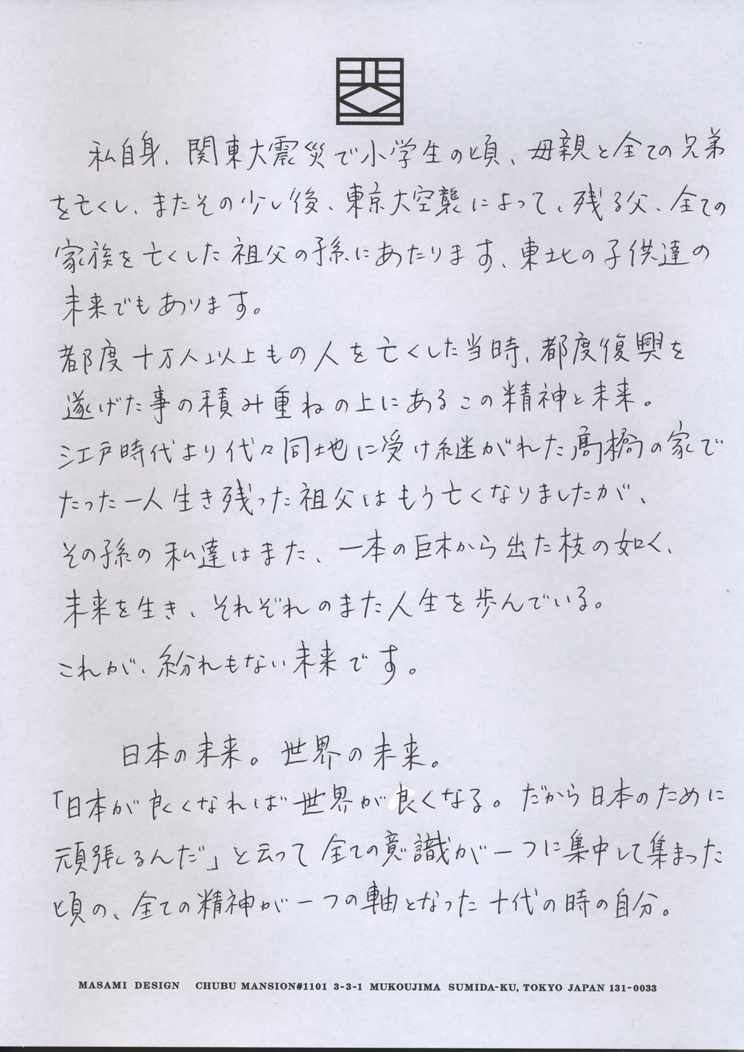 私自身、関東大震災で小学生の頃、母親と全ての兄弟
を亡くし、またその少し後、東京大空襲によって、残る父、全ての
家族を亡くした祖父の孫にあたります、東北の子供達の
未来でもあります。
都度十万人以上もの人を亡くした当時、都度復興を
遂げた事の積み重ねの上にあるこの精神と未来。
江戸時代より代々同地に受け継がれた髙橋の家で
たった一人生き残った祖父はもう亡くなりましたが、
その孫の私達はまた、一本の巨木から出た枝の如く、
未来を生き、それぞれのまた人生を歩んでいる。
これが、紛れもない未来です。
日本の未来。世界の未来。
「日本が良くなれば世界が良くなる。だから日本のために
頑張るんだ」と云って全ての意識が一つに集中して集まった
頃の、全ての精神が一つの軸となった十代の時の自分。
MASAMI DESIGN CHUBU MANSION#1101 3-3-1 MUKOUJIMA SUMIDA-KU, TOKYO JAPAN 131-0033